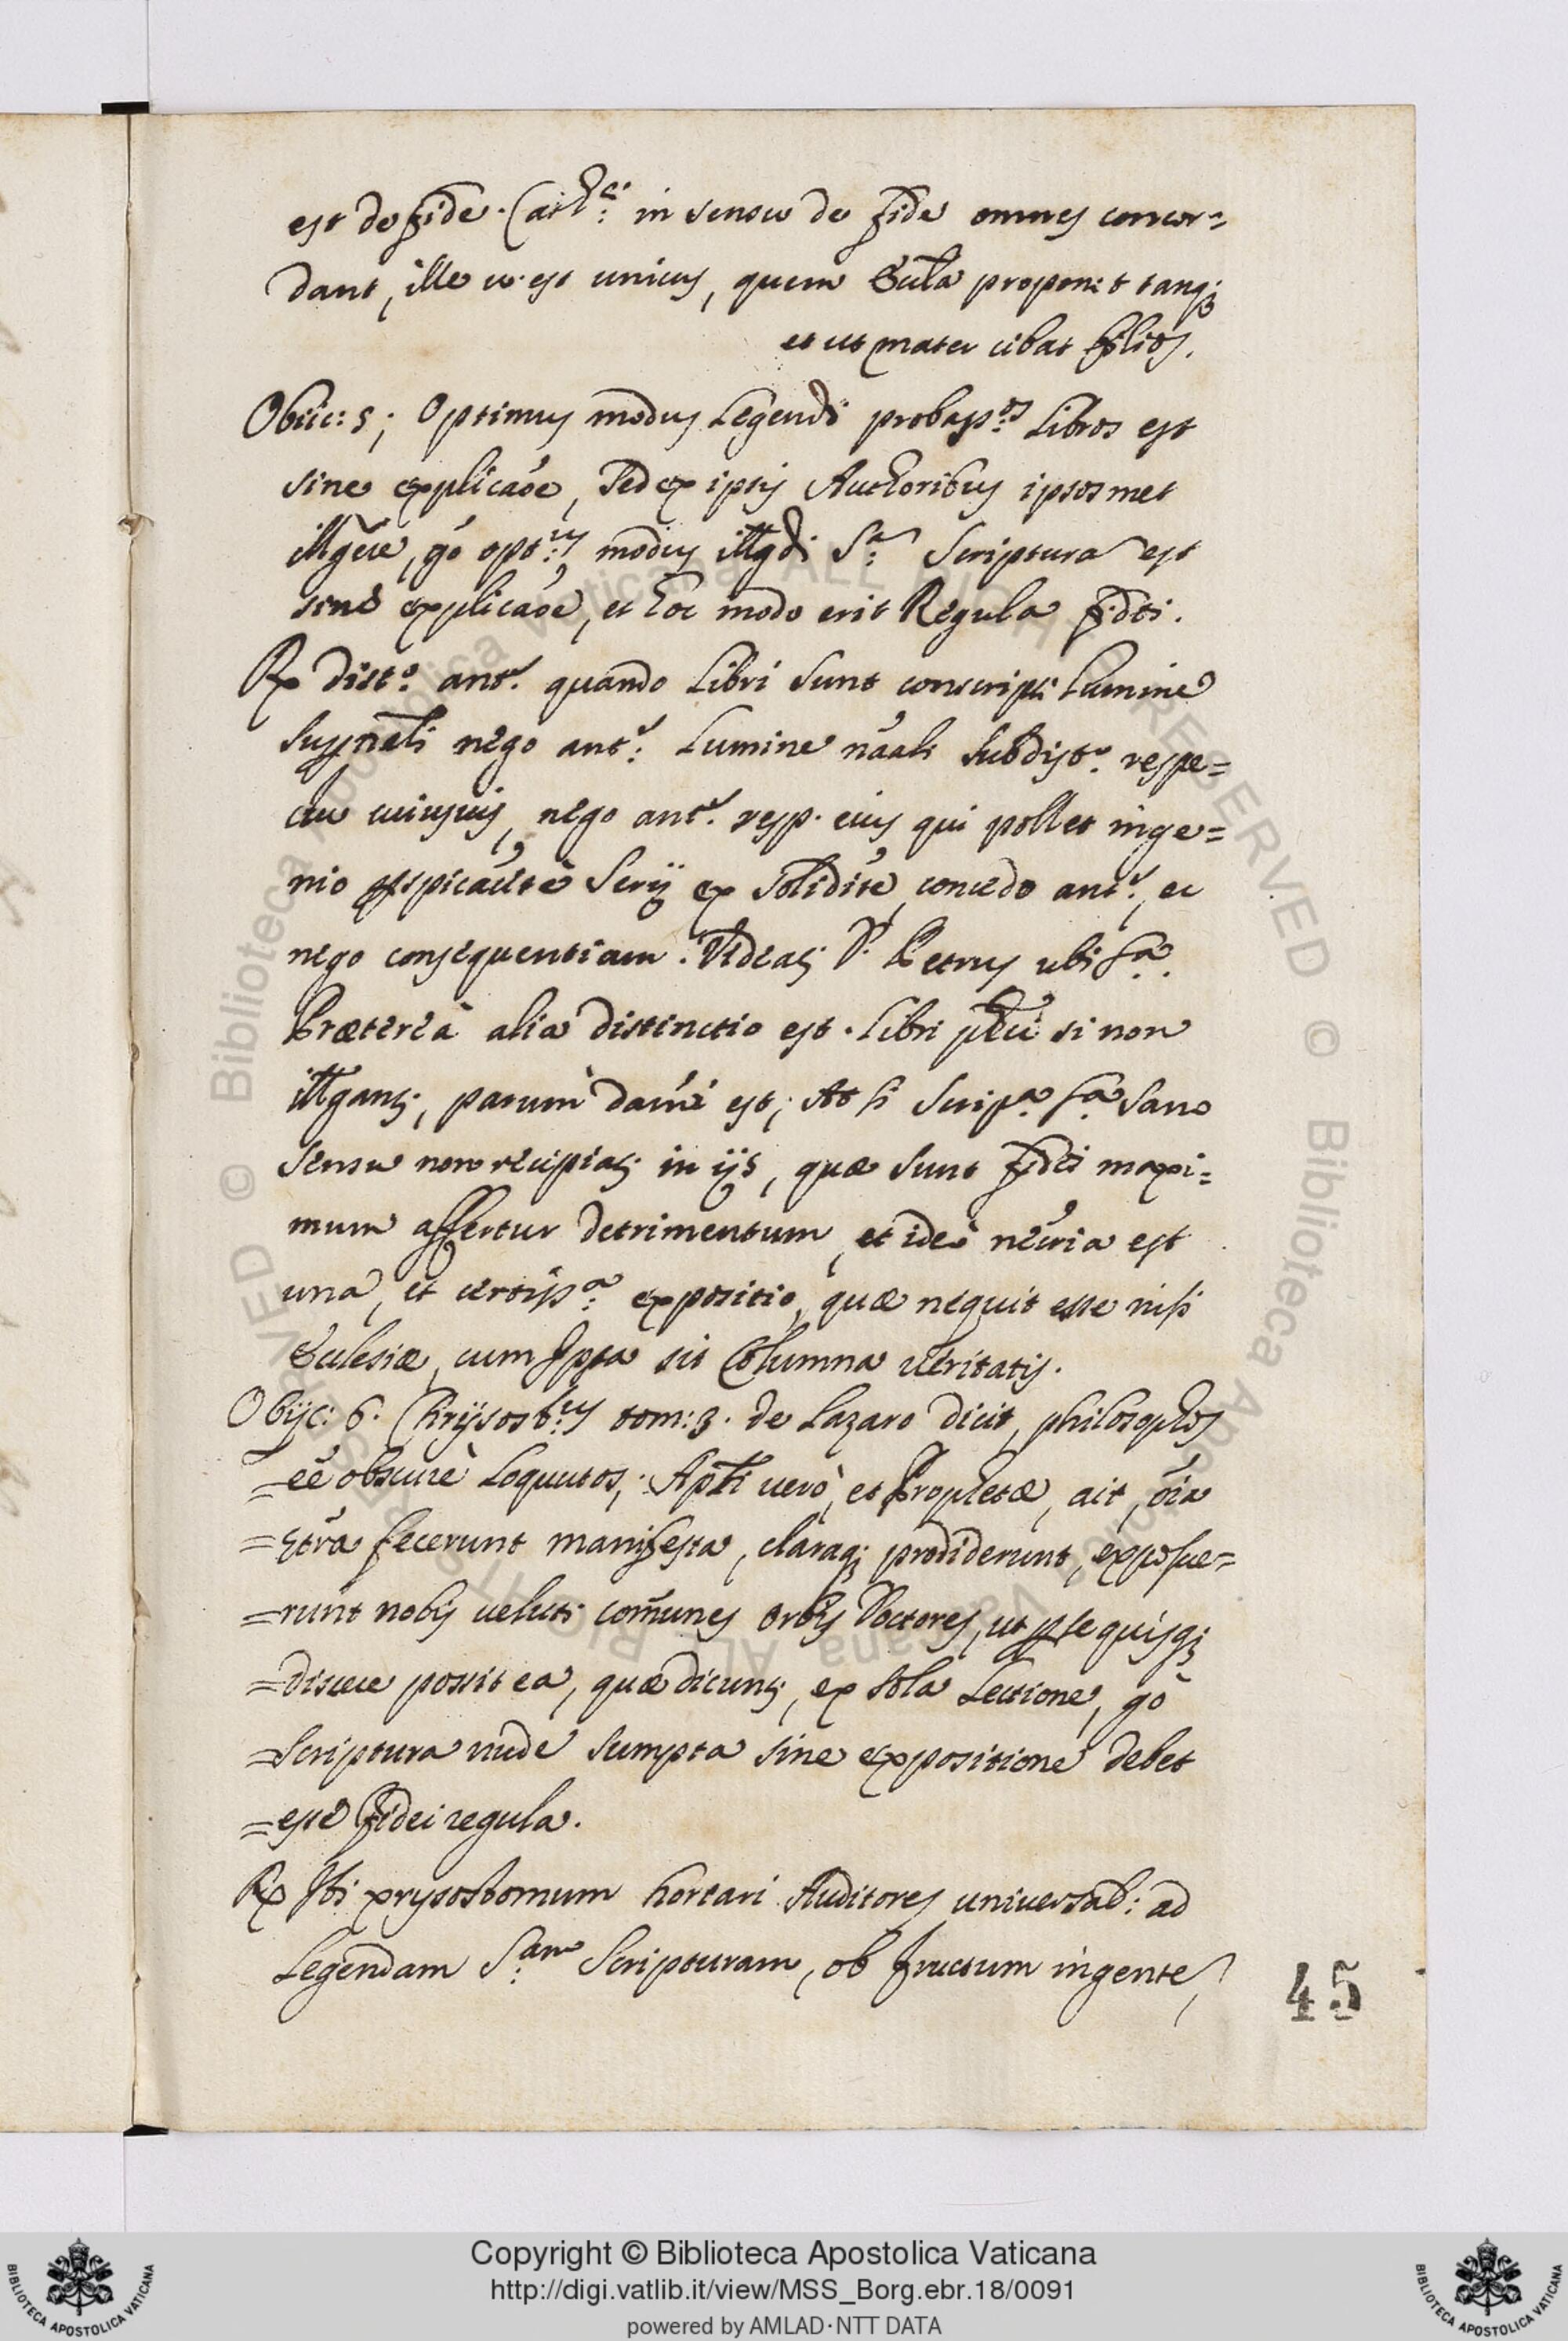 est de fide. Cath:ci in sensu de fide omnes concor=
dant, ille u. est unicus, quem Eccl̃a proponit tanq;
et ut mater cibat filios.
Obiic: 5; Optimus modus Legendi probatiss:os Libros est
sine explicaõe, sed ex ipsis Authoribus ipsosmet
illĩgere, gõ opt:us modus illĩgdi S:ae Scripturae est
sine explicaõe, et hoc modo erit Regula fidei.
Rx dist:o ant:s quando Libri sunt conscripti Lumine
supñali nego ant:s Lumine nãali subdist:o respe=
ctu cuiusvis, nego ant:s resp. eius qui pollet inge=
nio perspicacitate Serij ex soliditate, concedo ant:s, et
nego consequentiam. Videas D. Petrus ubi s:a
Prætereà alia distinctio est. Libri phĩci si non
illĩgant;, parum dam̃i est; At si Scrip:a S:a sano
sensu non recipiat; in ijs, quæ sunt fidei maxi=
mum affertur detrimentum, et ideò neũria est
una, et certiss:a expositio, quæ nequit esse nisi
Ecclesiæ, cum Ipsa sit Columna veritatis.
Obijc: 6. Chrijsost:us tom:3. de Lazaro dicit, philosophos
=eẽ obscurè Loquutos; Apl̃i verò, et Prophetæ, ait, oĩa
=9tra fecerunt manifesta, claraq; prodiderunt, exposue=
=runt nobis veluti com̃unes orbis Doctores, ut per se quisq;
=discere possit ea, quæ dicunt;, ex sola Lectione, gõ
=Scriptura nude sumpta sine expositione debet
=esse fidei regula.
Rx Ibi xrysostomum hortari Auditores universal: ad
Legendam S:am Scripturam, ob fructum ingente,
45
© Biblioteca Apostolica Vaticana ALL RIGHTS RESERVED
Copyright © Biblioteca Apostolica Vaticana
http://digi.vatlib.it/view/MSS_Borg.ebr.18/0091
powered by AMLAD·NTT DATA
BIBLIOTECA APOSTOLICA VATICANA
BIBLIOTECA APOSTOLICA VATICANA